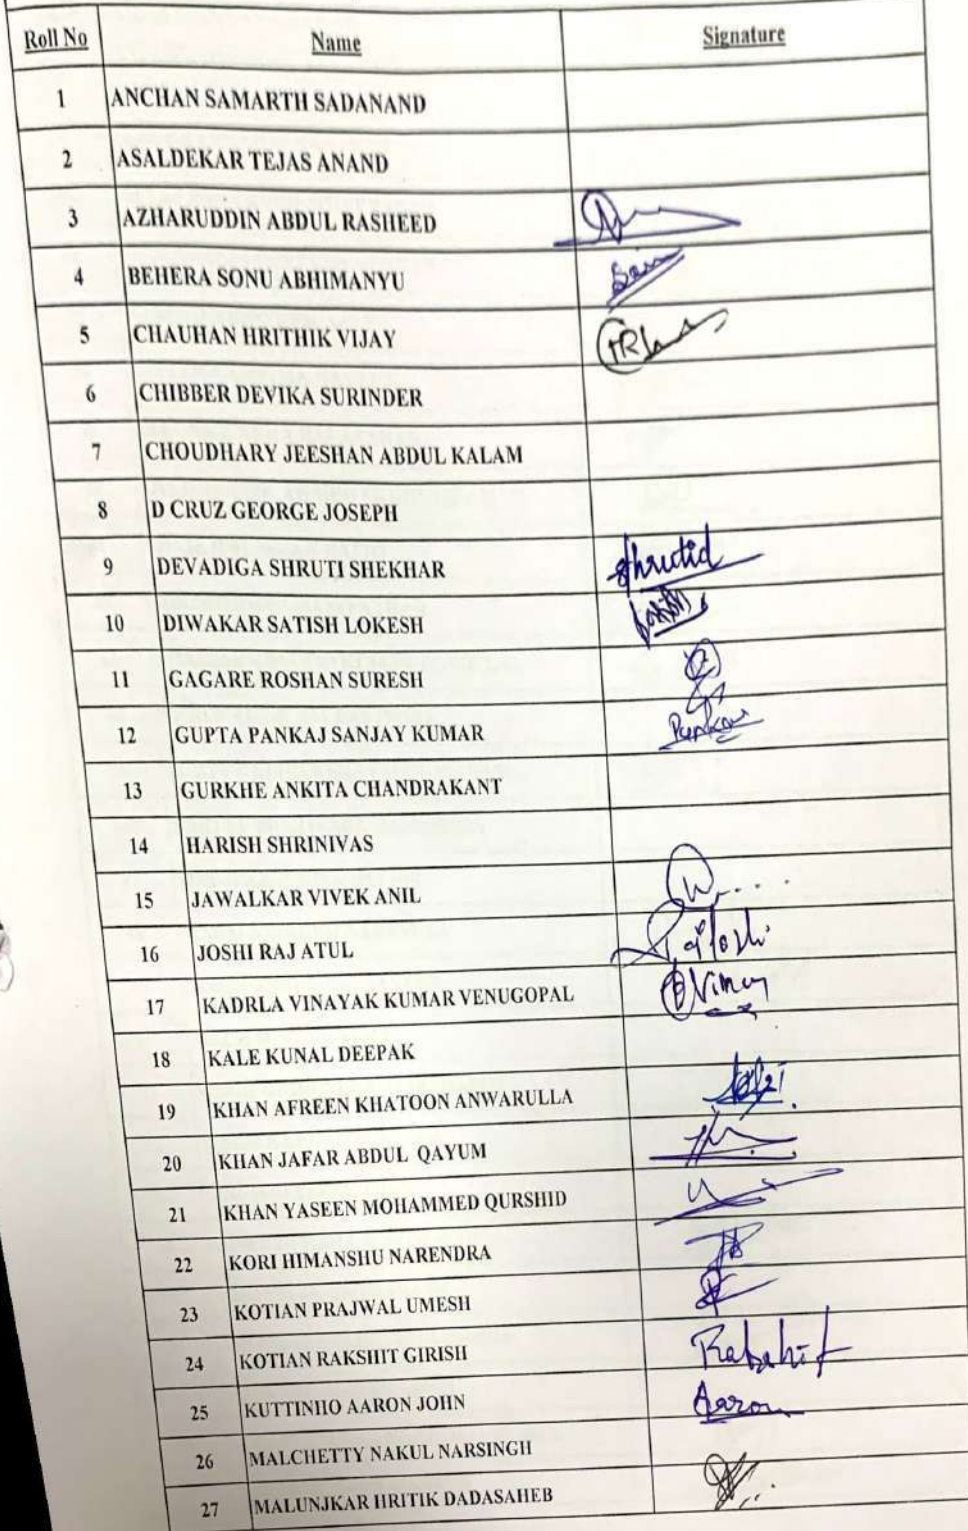 Roll No Name Signature
1 ANCHAN SAMARTH SADANAND
2 ASALDEKAR TEJAS ANAND
3 AZHARUDDIN ABDUL RASHEED
4 BEHERA SONU ABHIMANYU
5 CHAUHAN HRITHIK VIJAY
6 CHIBBER DEVIKA SURINDER
7 CHOUDHARY JEESHAN ABDUL KALAM
8 D CRUZ GEORGE JOSEPH
9 DEVADIGA SHRUTI SHEKHAR Shrutid
10 DIWAKAR SATISH LOKESH
11 GAGARE ROSHAN SURESH
12 GUPTA PANKAJ SANJAY KUMAR
13 GURKHE ANKITA CHANDRAKANT
14 HARISH SHRINIVAS
15 JAWALKAR VIVEK ANIL
16 JOSHI RAJ ATUL
17 KADRLA VINAYAK KUMAR VENUGOPAL
18 KALE KUNAL DEEPAK
19 KHAN AFREEN KHATOON ANWARULLA
20 KHAN JAFAR ABDUL QAYUM
21 KHAN YASEEN MOHAMMED QURSHID
22 KORI HIMANSHU NARENDRA
23 KOTIAN PRAJWAL UMESH
24 KOTIAN RAKSHIT GIRISH
25 KUTTINHO AARON JOHN Aaron
26 MALCHETTY NAKUL NARSINGH
27 MALUNJKAR HRITIK DADASAHEB